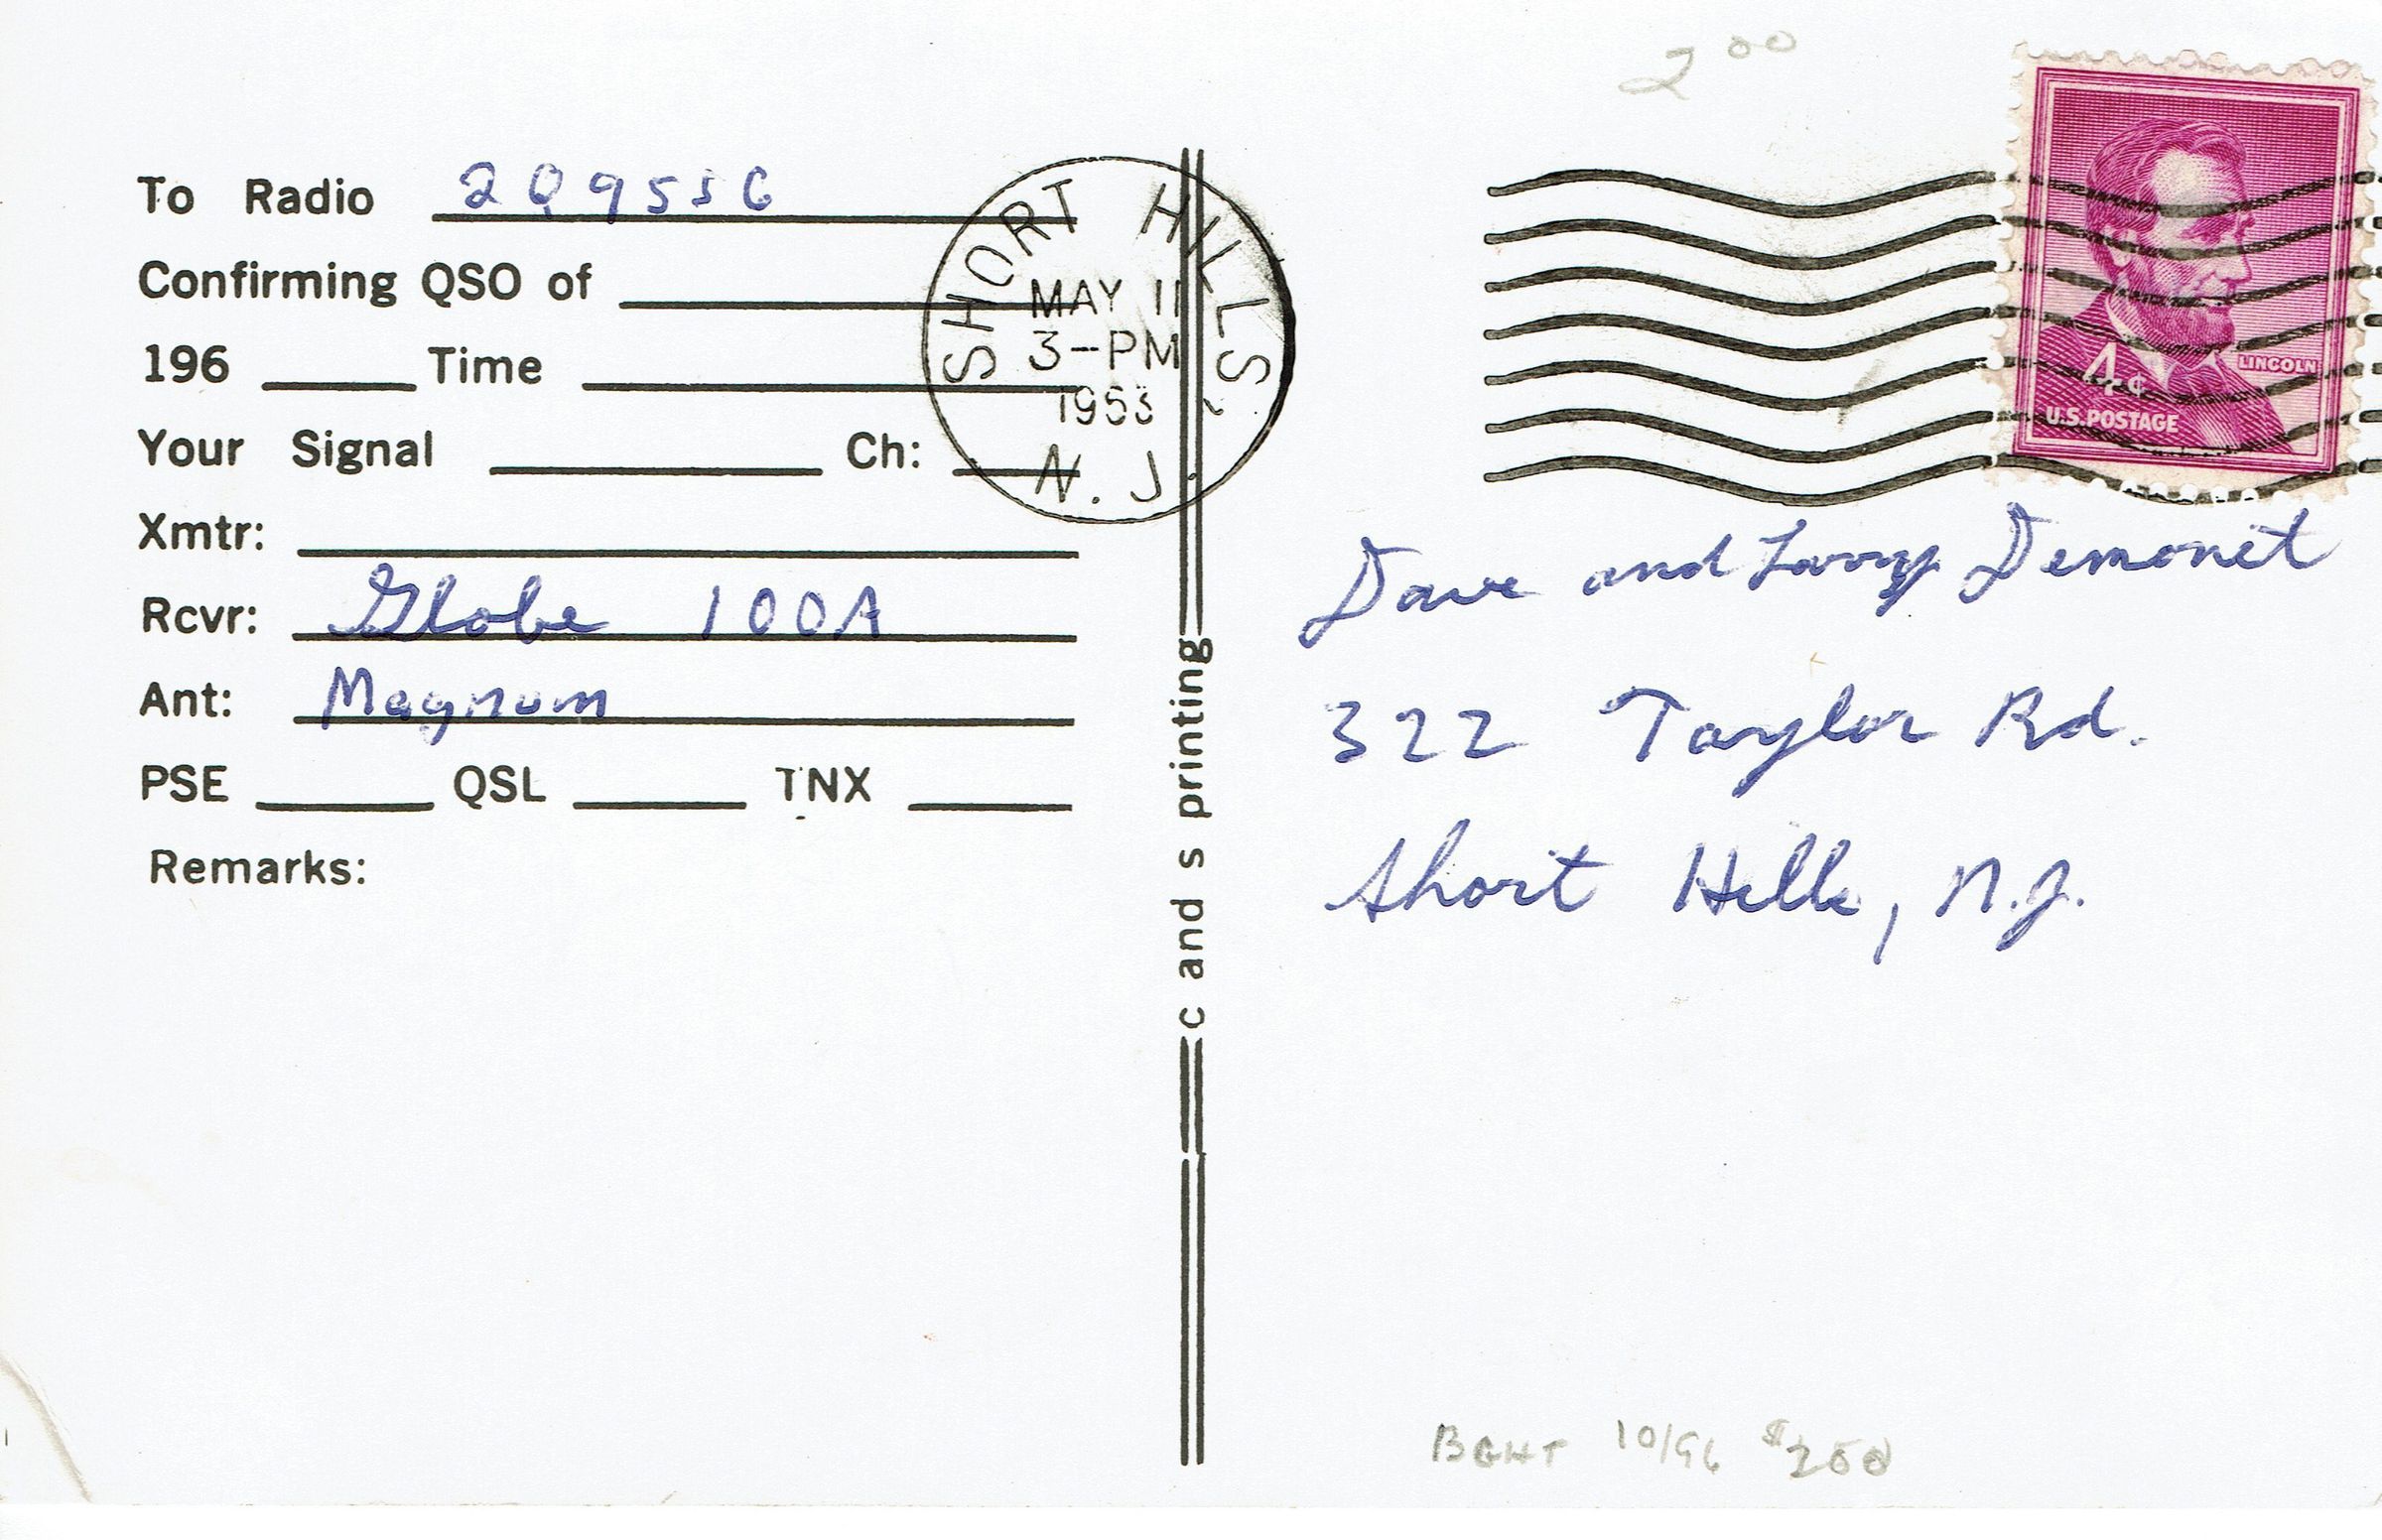 2 00
To Radio 2Q9556
Confirming QSO of
196 Time
Your Signal Ch:
Xmtr:
Rcvr: Globe 100A
Ant: Magnum
PSE QSL TNX
Remarks:
SHORT HILLS,
MAY 11
3-PM
1963
N. J.
c and s printing
LINCOLN
4¢
U.S. POSTAGE
Dave and Larry Demonet
322 Taylor Rd.
Short Hills, N.J.
BGHT 10/96 $200